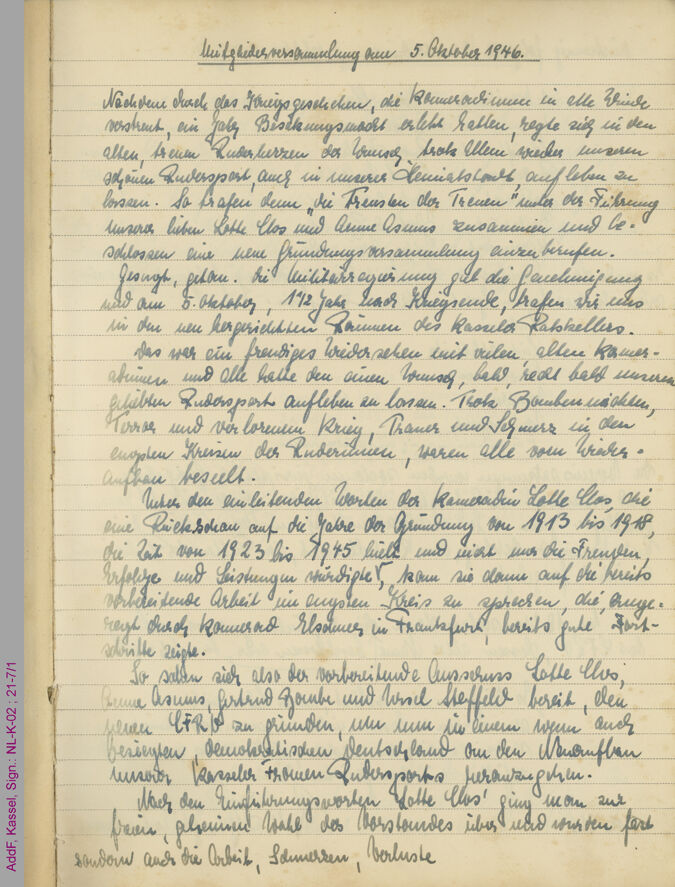 Mitgliederversammlung am 5. Oktober 1946.
Nachdem durch das Kriegsgeschehen, die Kameradinnen in alle Winde
verstreut, ein Jahr Besatzungsmacht erlebt hatten, regte sich in den
alten, treuen Ruderherzen der Wunsch, trotz Allem wieder unseren
schönen Rudersport, auch in unserer Heimatstadt aufleben zu
lassen. So trafen denn „die Treusten der Treuen" unter der Führung
unserer lieben Lotte Clos und Aenne Asmus zusammen und be-
schlossen eine neue Gründungsversammlung einzuberufen.
Gesagt, getan. Die Militärregierung gab die Genehmigung
und am 5. Oktober, 1 1/2 Jahr nach Kriegsende, trafen wir uns
in den neu hergerichteten Räumen des Kasseler Ratskellers.
Das war ein freudiges Wiedersehen mit vielen, alten Kamer-
adinnen und alle hatte den einen Wunsch, bald, recht bald unseren
geliebten Rudersport aufleben zu lassen. Trotz Bombennächten,
Terror und verlorenem Krieg, Trauer und Schmerz in den
engsten Kreisen der Ruderinnen, waren alle vom Wieder-
aufbau beseelt.
Unter den einleitenden Worten der Kameradin Lotte Clos, die
eine Rückschau auf die Jahre der Gründung von 1913 bis 1918,
die Zeit von 1923 bis 1945 hielt und nicht nur die Freuden,
Erfolge und Leistungen würdigte, kam sie dann auf die bereits
vorbereitende Arbeit im engsten Kreis zu sprechen, die, ange-
regt durch Kamerad in Frankfurt, bereits gute Fort-
schritte zeigte.
So sahen sich also der vorbereitende Ausschuss Lotte Clos,
Aenne Asmus, Gertrud und Ursel Steffeld bereit, den
neuen CFRV zu gründen, um nun in einem wenn auch
besiegten, demokratischen Deutschland an den Neuaufbau
unseres Kasseler Frauen Rudersports heranzugehen.
Nach den Einführungsworten Lotte Clos' ging man zur
freien, geheimen Wahl des Vorstandes über und wurden fast
sondern auch die Arbeit, Schmerzen, Verluste
AddF, Kassel, Sign.: NL-K-02 ; 21-7/1